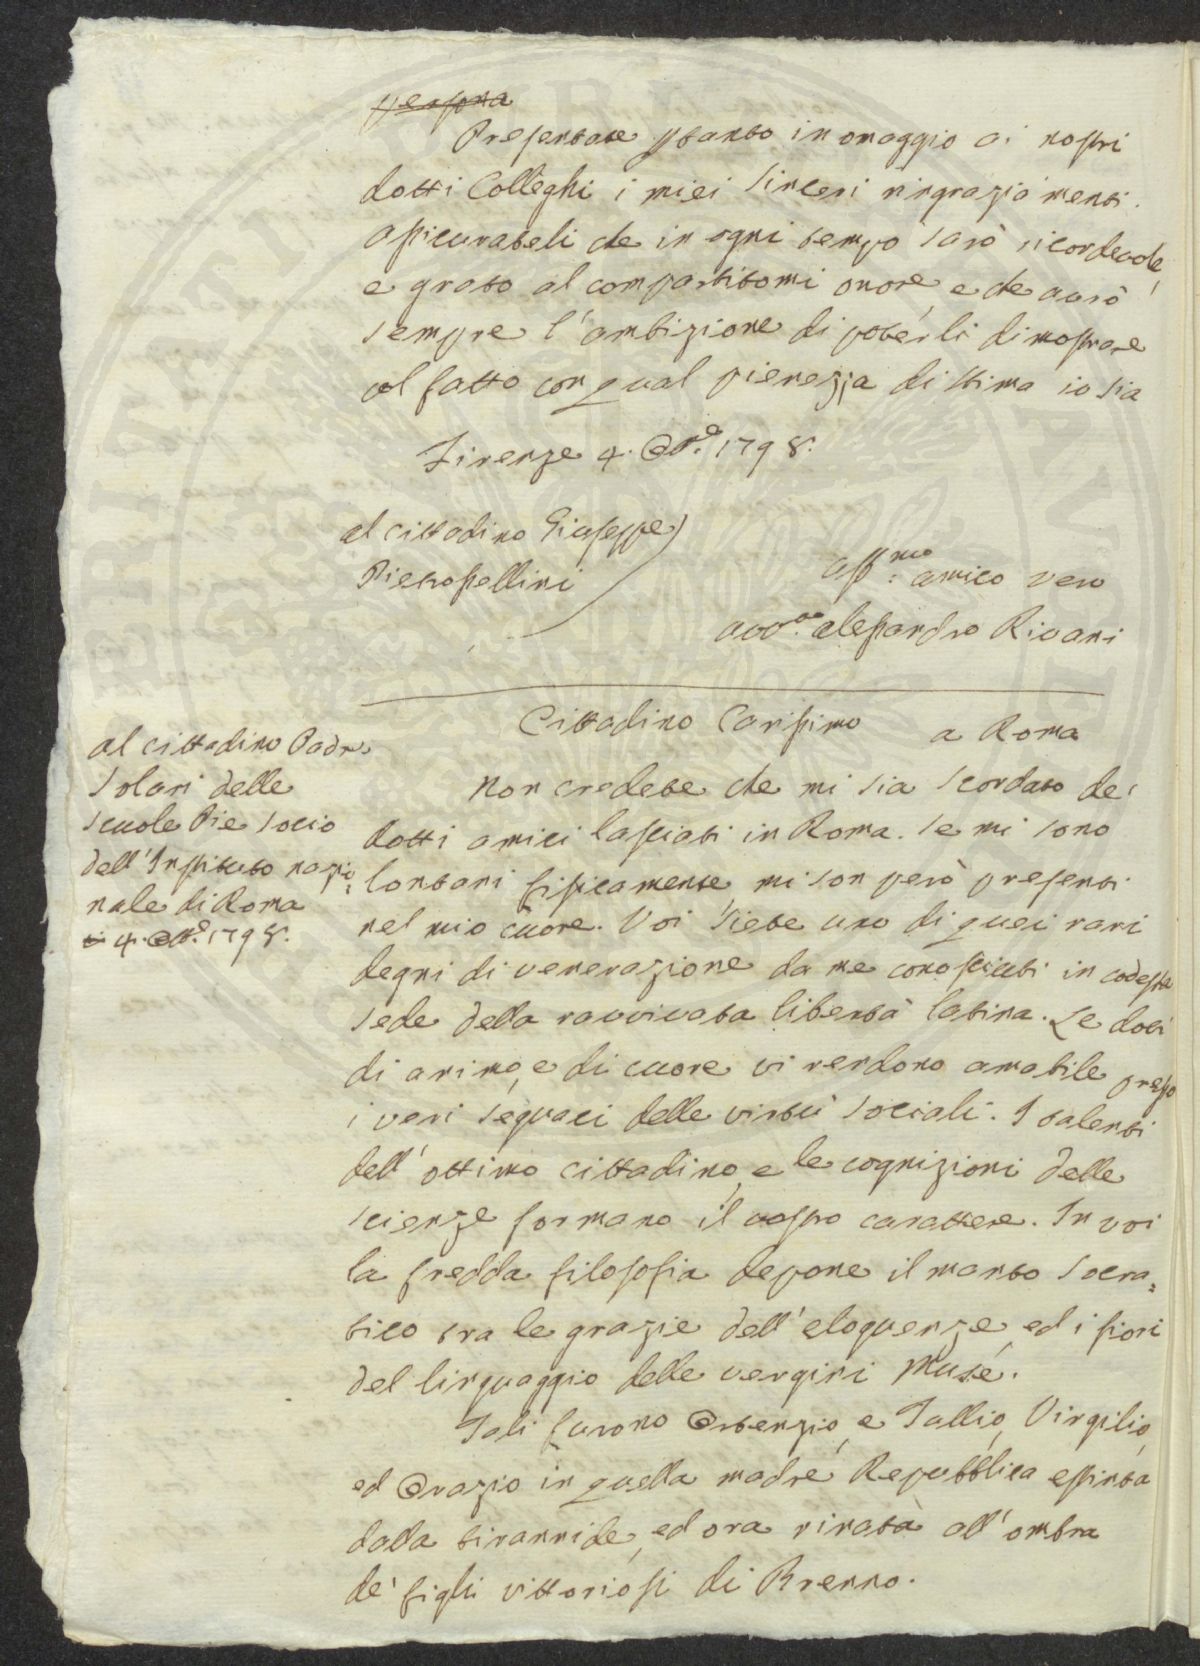 persona
Presentate ptanto in omaggio ai nostri
dotti Colleghi i miei sinceri ringraziamenti.
Assicurateli che in ogni tempo sarò ricordevole,
e grato al compartitomi onore, e che avrò
sempre l'ambizione di poterli dimostrare
col fatto con qual pienezza di stima io sia
Firenze 4. Ott.e 1798.
al cittadino Giuseppe
Pietropellini
aff.mo amico vero
avv.to Alessandro Rivani
Cittadino Carissimo a Roma
al cittadino Padre
Solari delle
Scuole Pie socio
dell'Instituto nazio=
nale di Roma
4. Ott.e 1798.
Non credete che mi sia scordato de'
dotti amici lasciati in Roma. Se mi sono
lontani fisicamente, mi son però presenti
nel mio cuore. Voi siete uno di quei rari
degni di venerazione da me conosciuti in codesta
sede della ravvivata libertà latina. Le doti
di animo, e di cuore vi rendono amabile presso
i veri seguaci delle virtù sociali. I talenti
dell'ottimo cittadino, e le cognizioni delle
scienze formano il vostro carattere. In voi
la fredda filosofia depone il manto Socra=
tico tra le grazie dell'eloquenze, ed i fiori
del linguaggio delle vergini Muse.
Tali furono Ortenzio, e Tullio, Virgilio,
ed Orazio in quella madre Repubblica estinta
dalla tirannide, ed ora rinata all'ombra
de' figli vittoriosi di Brenno.